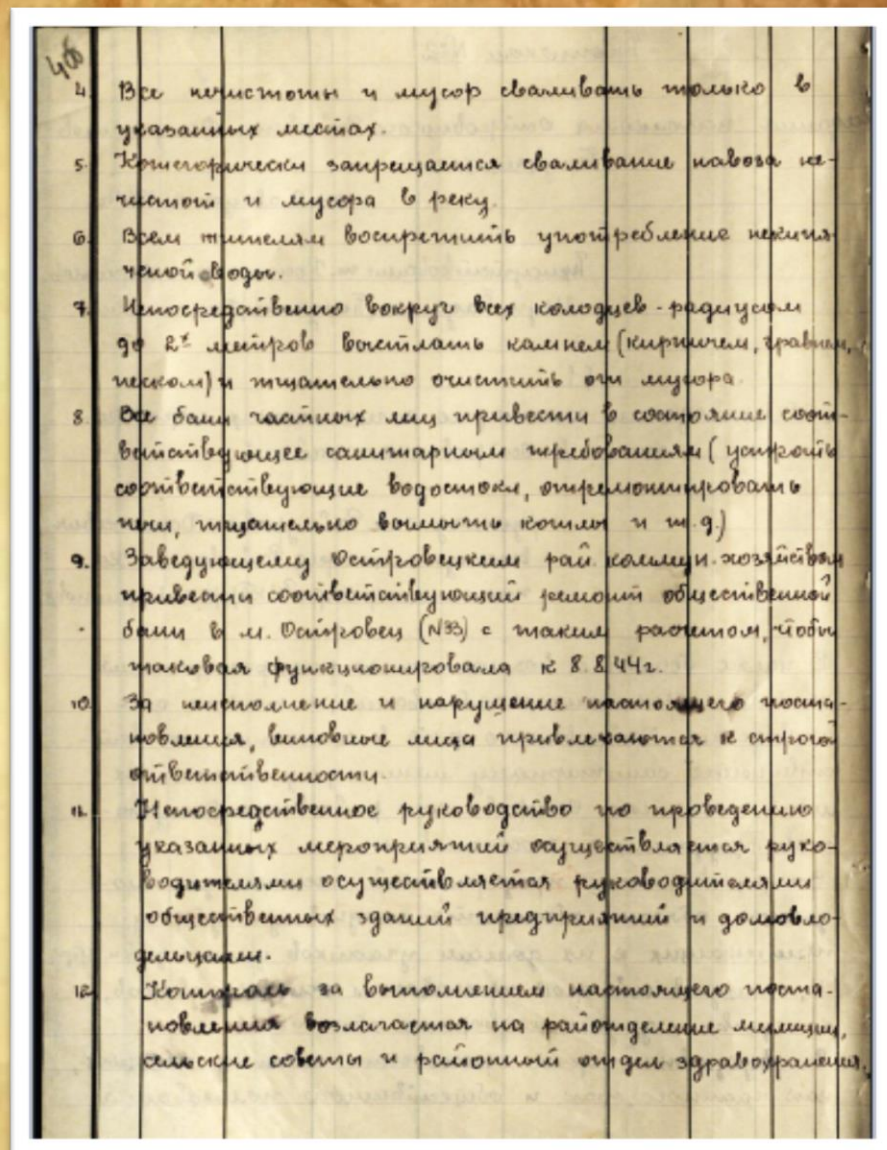 4. Все нечистоты и мусор сваливать только в
указанных местах.
5. Категорически запрещается сваливание навоза не-
чистот и мусора в реку.
6. Всем жителям воспретить употребление некипя-
ченой воды.
7. Непосредственно вокруг всех колодцев - радиусом
до 2х метров выстлать камнем (кирпичем, гравием,
песком) и тщательно очистить от мусора.
8. Все бани частных лиц привести в состояние соот-
ветствующее санитарным требованиям (устроить
соответствующие водостоки, отремонтировать
печи, тщательно вымыть котлы и т.д.)
9. Заведующему Островецким рай. коммун. хозяйством
привести соответствующий ремонт общественной
бани в м. Островец (№33) с таким расчетом, чтобы
таковая функционировала к 8.8.44г.
10. За неисполнение и нарушение настоящего поста-
новления, виновные лица привлекаются к строгой
ответственности
11. Непосредственное руководство по проведению
указанных мероприятий осуществляется руко-
водителями осуществляется руководителями
общественных зданий предприятий и домовла-
дельцами.
12. Контроль за выполнением настоящего поста-
новления возлагается на райотделение милиции,
сельские советы и районный отдел здравохранения.